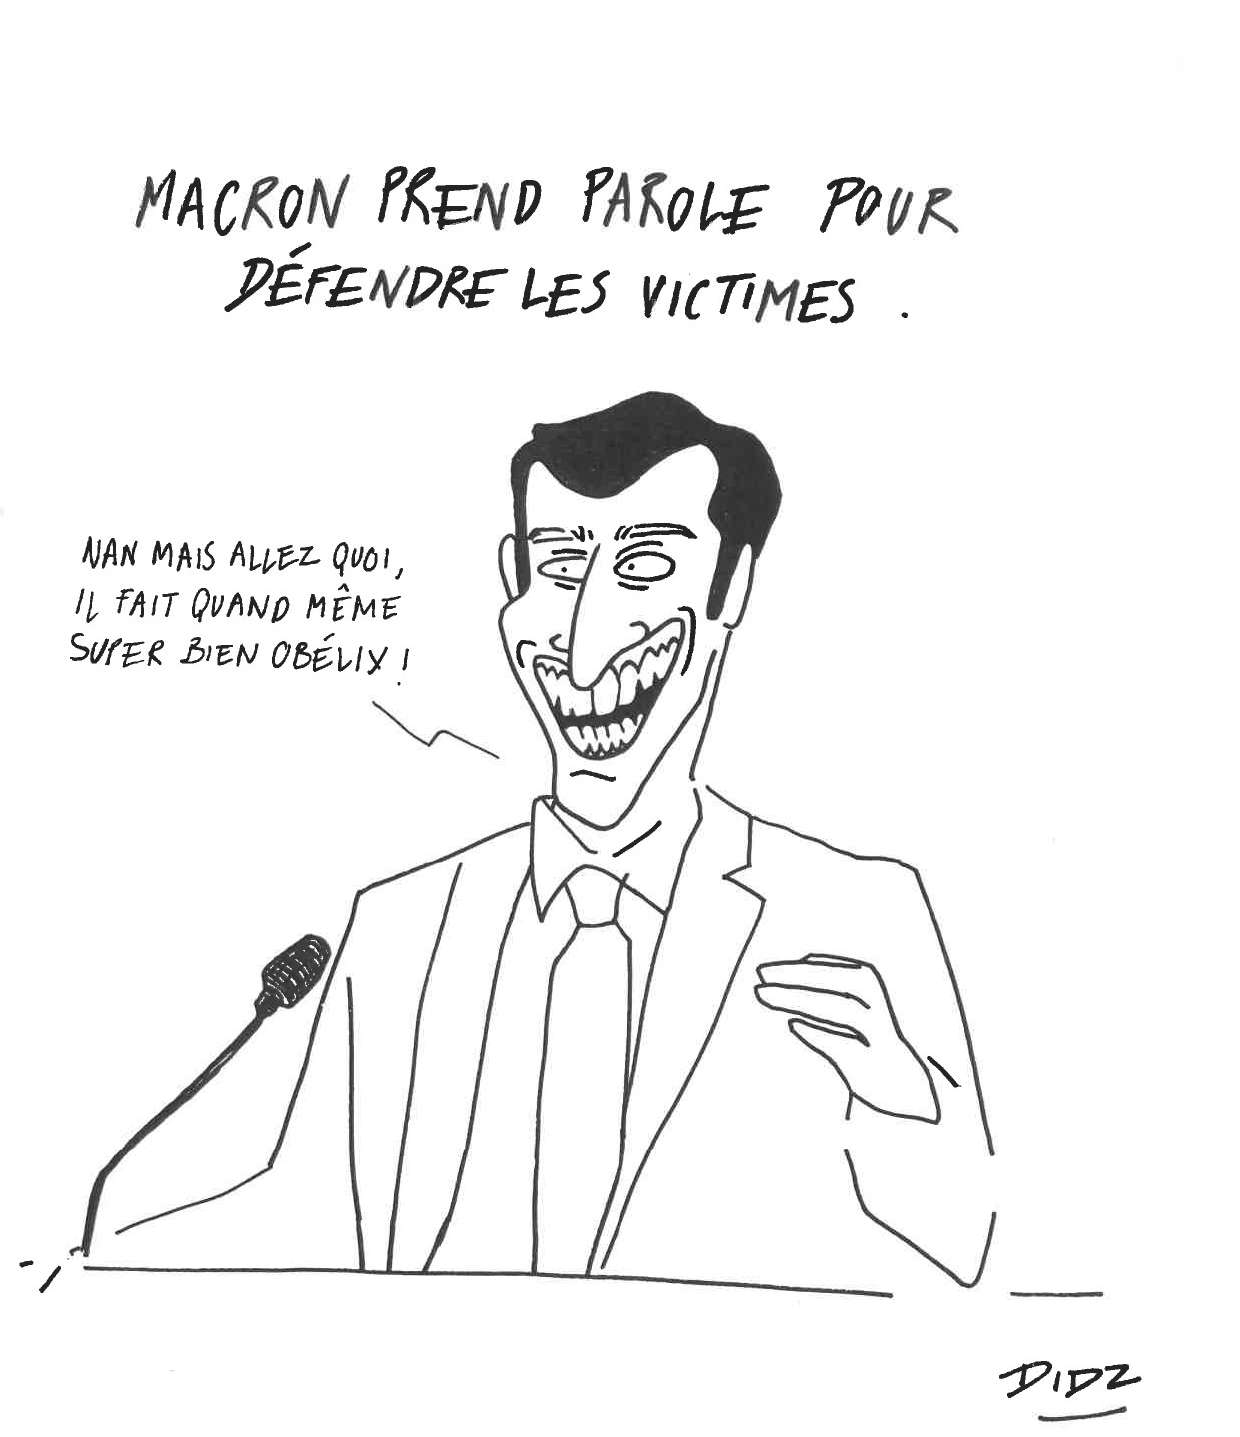 MACRON PREND PAROLE POUR
DÉFENDRE LES VICTIMES .
NAN MAIS ALLEZ QUOI,
IL FAIT QUAND MÊME
SUPER BIEN OBÉLIX !
DIDZ